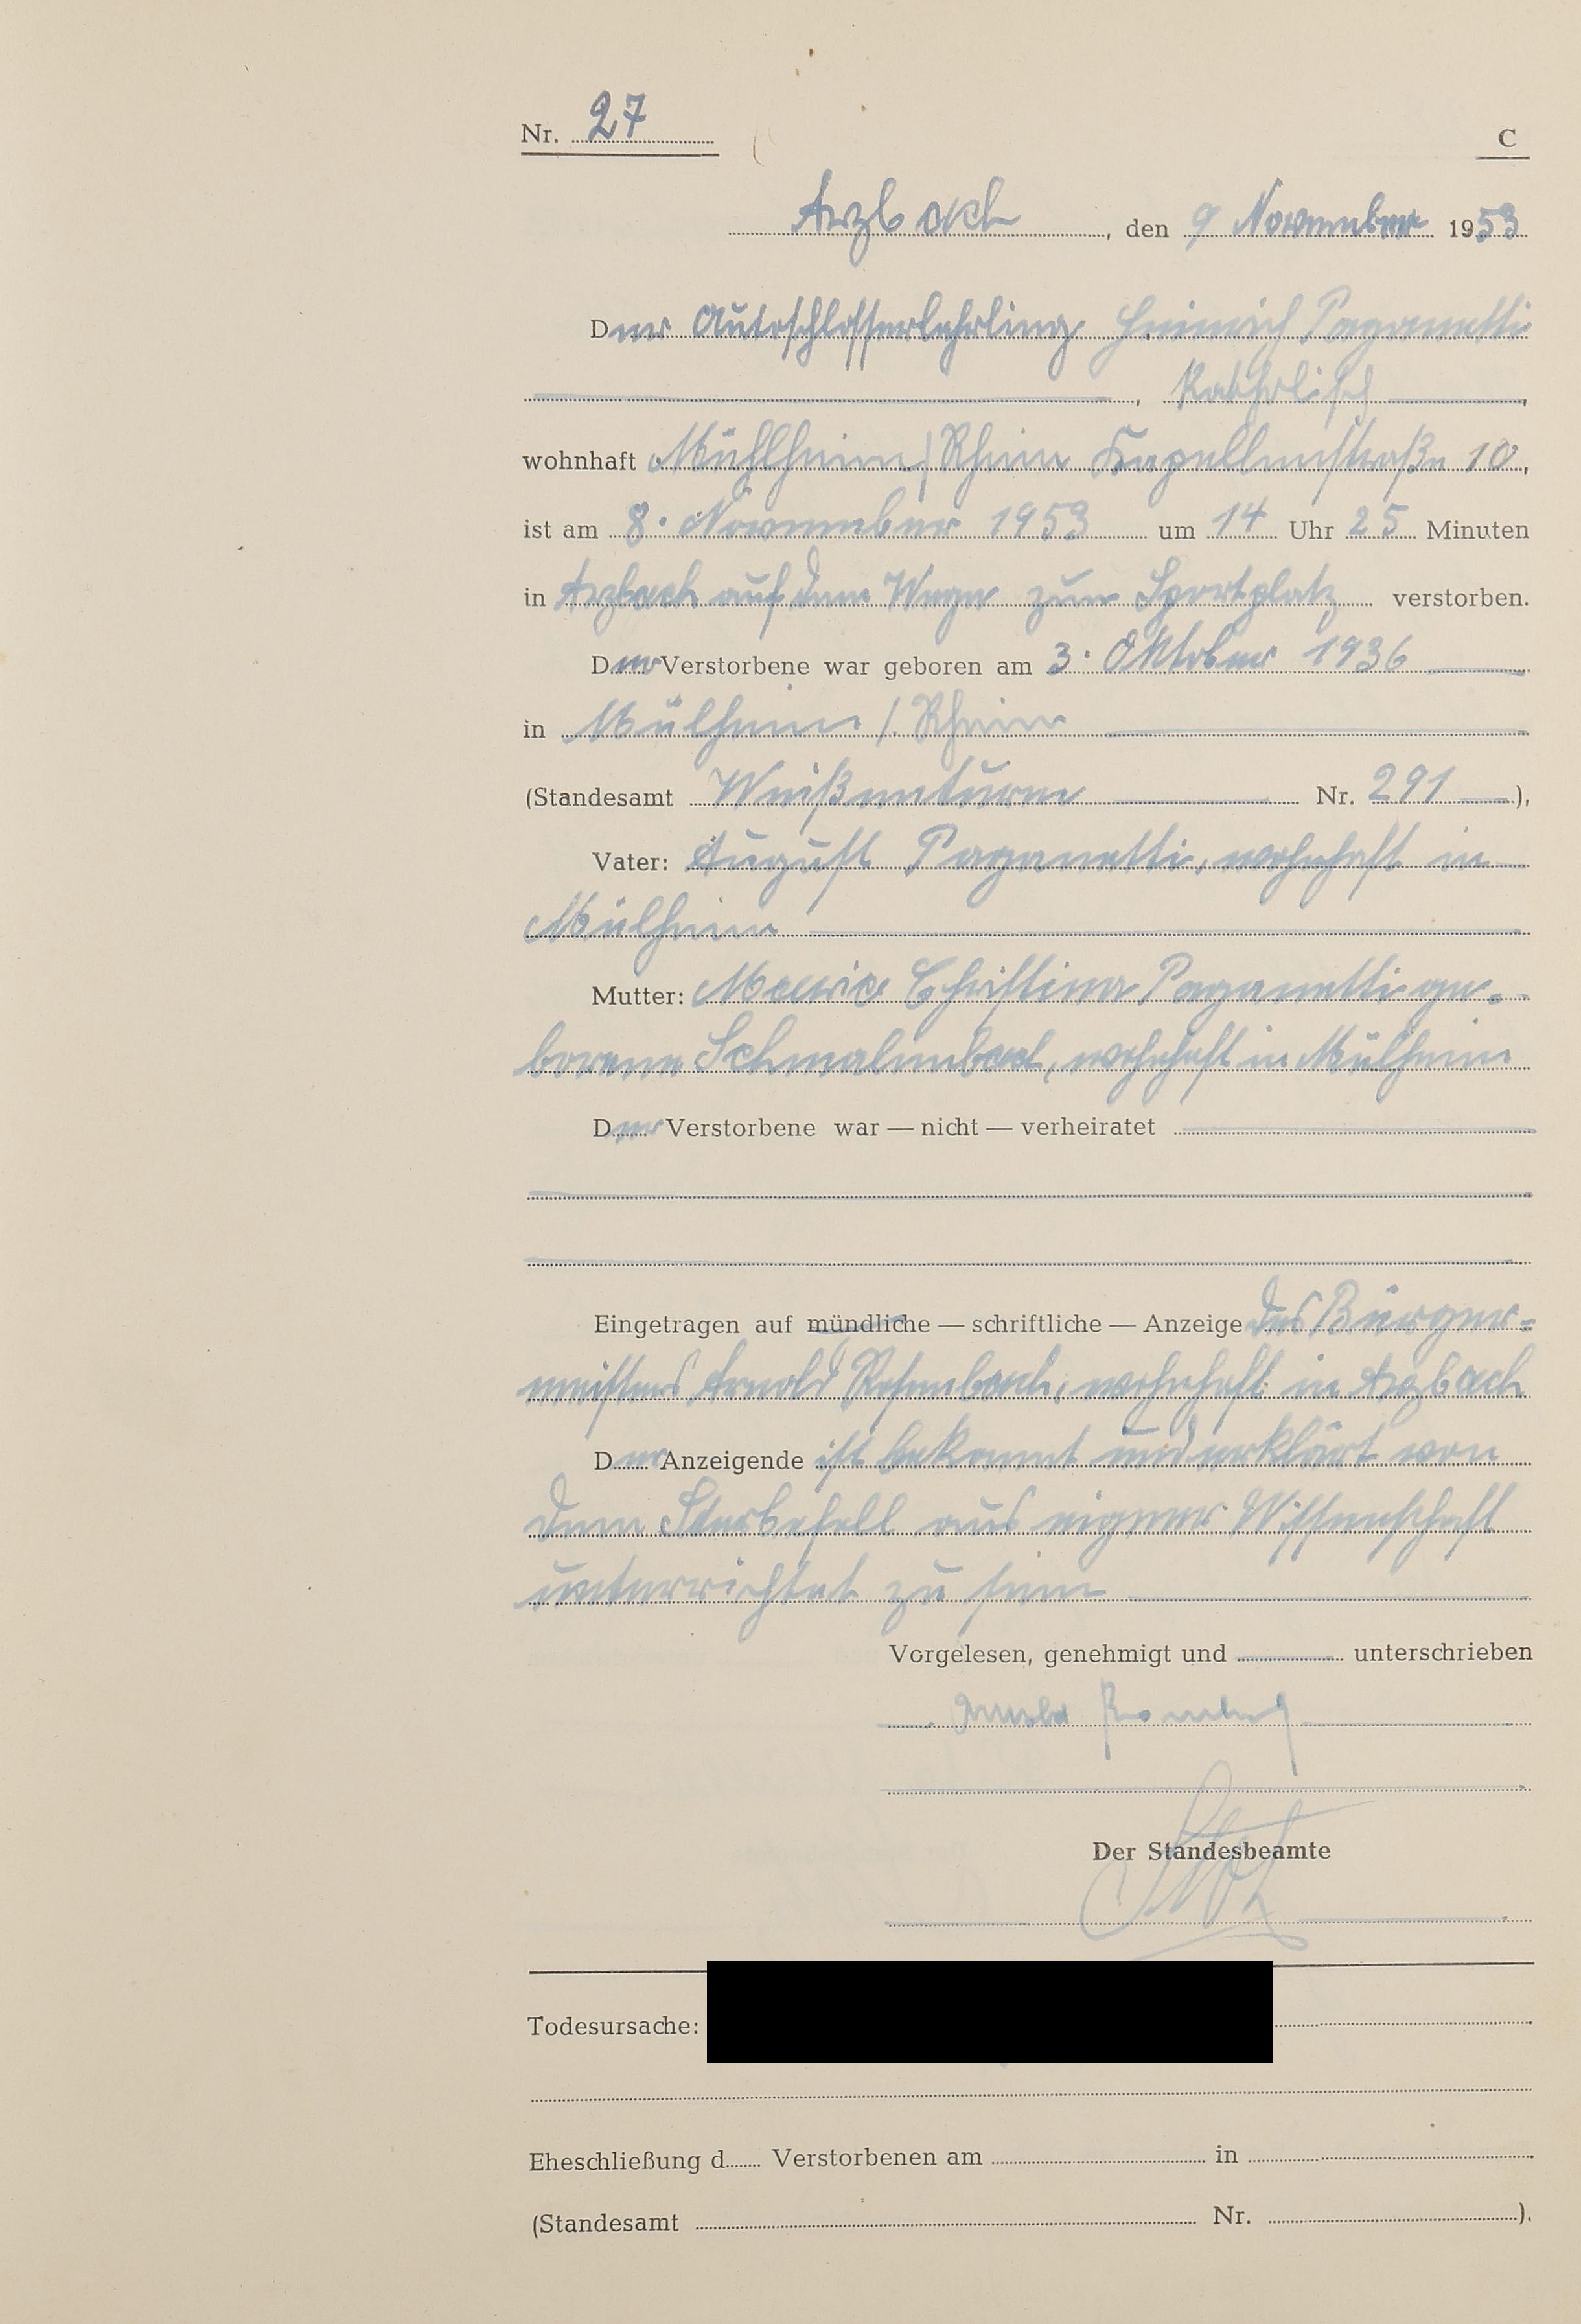 Nr. 27
C
Arzbach, den 9 November 1953
Der Autoschlosserlehrling Heinrich Paganetti
, katholisch,
wohnhaft Mühlheim/Rhein Kapellenstraße 10,
ist am 8. November 1953 um 14 Uhr 25 Minuten
in Arzbach auf dem Wege zum Sportplatz verstorben.
Der Verstorbene war geboren am 3. Oktober 1936
in Mülheim /. Rhein
(Standesamt Weißenturm Nr. 291),
Vater: August Paganetti, wohnhaft in
Mülheim
Mutter: Maria Christina Paganetti ge-
borene Schmalenbach, wohnhaft in Mülheim
Der Verstorbene war — nicht — verheiratet
Eingetragen auf mündliche — schriftliche — Anzeige des Bürger=
meisters Arnold Rosenbach, wohnhaft in Arzbach
Der Anzeigende ist bekannt und erklärt von
dem Sterbefall aus eigener Wissenschaft
unterrichtet zu sein
Vorgelesen, genehmigt und unterschrieben
Der Standesbeamte
Todesursache:
Eheschließung d Verstorbenen am in
(Standesamt Nr. ).